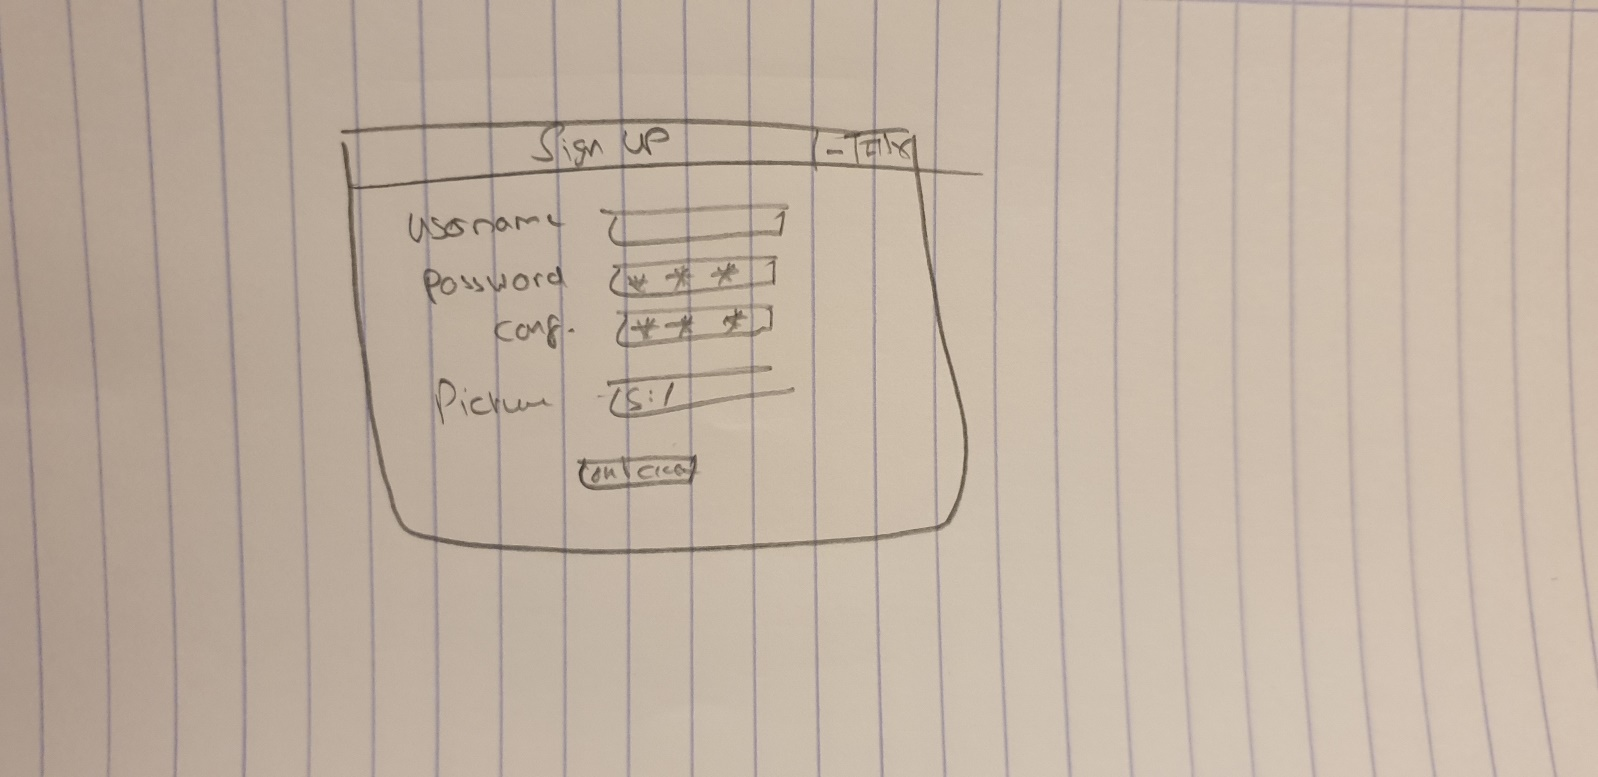 Sign UP - x
Username
Password * * *
conf. * * *
Picture S:/